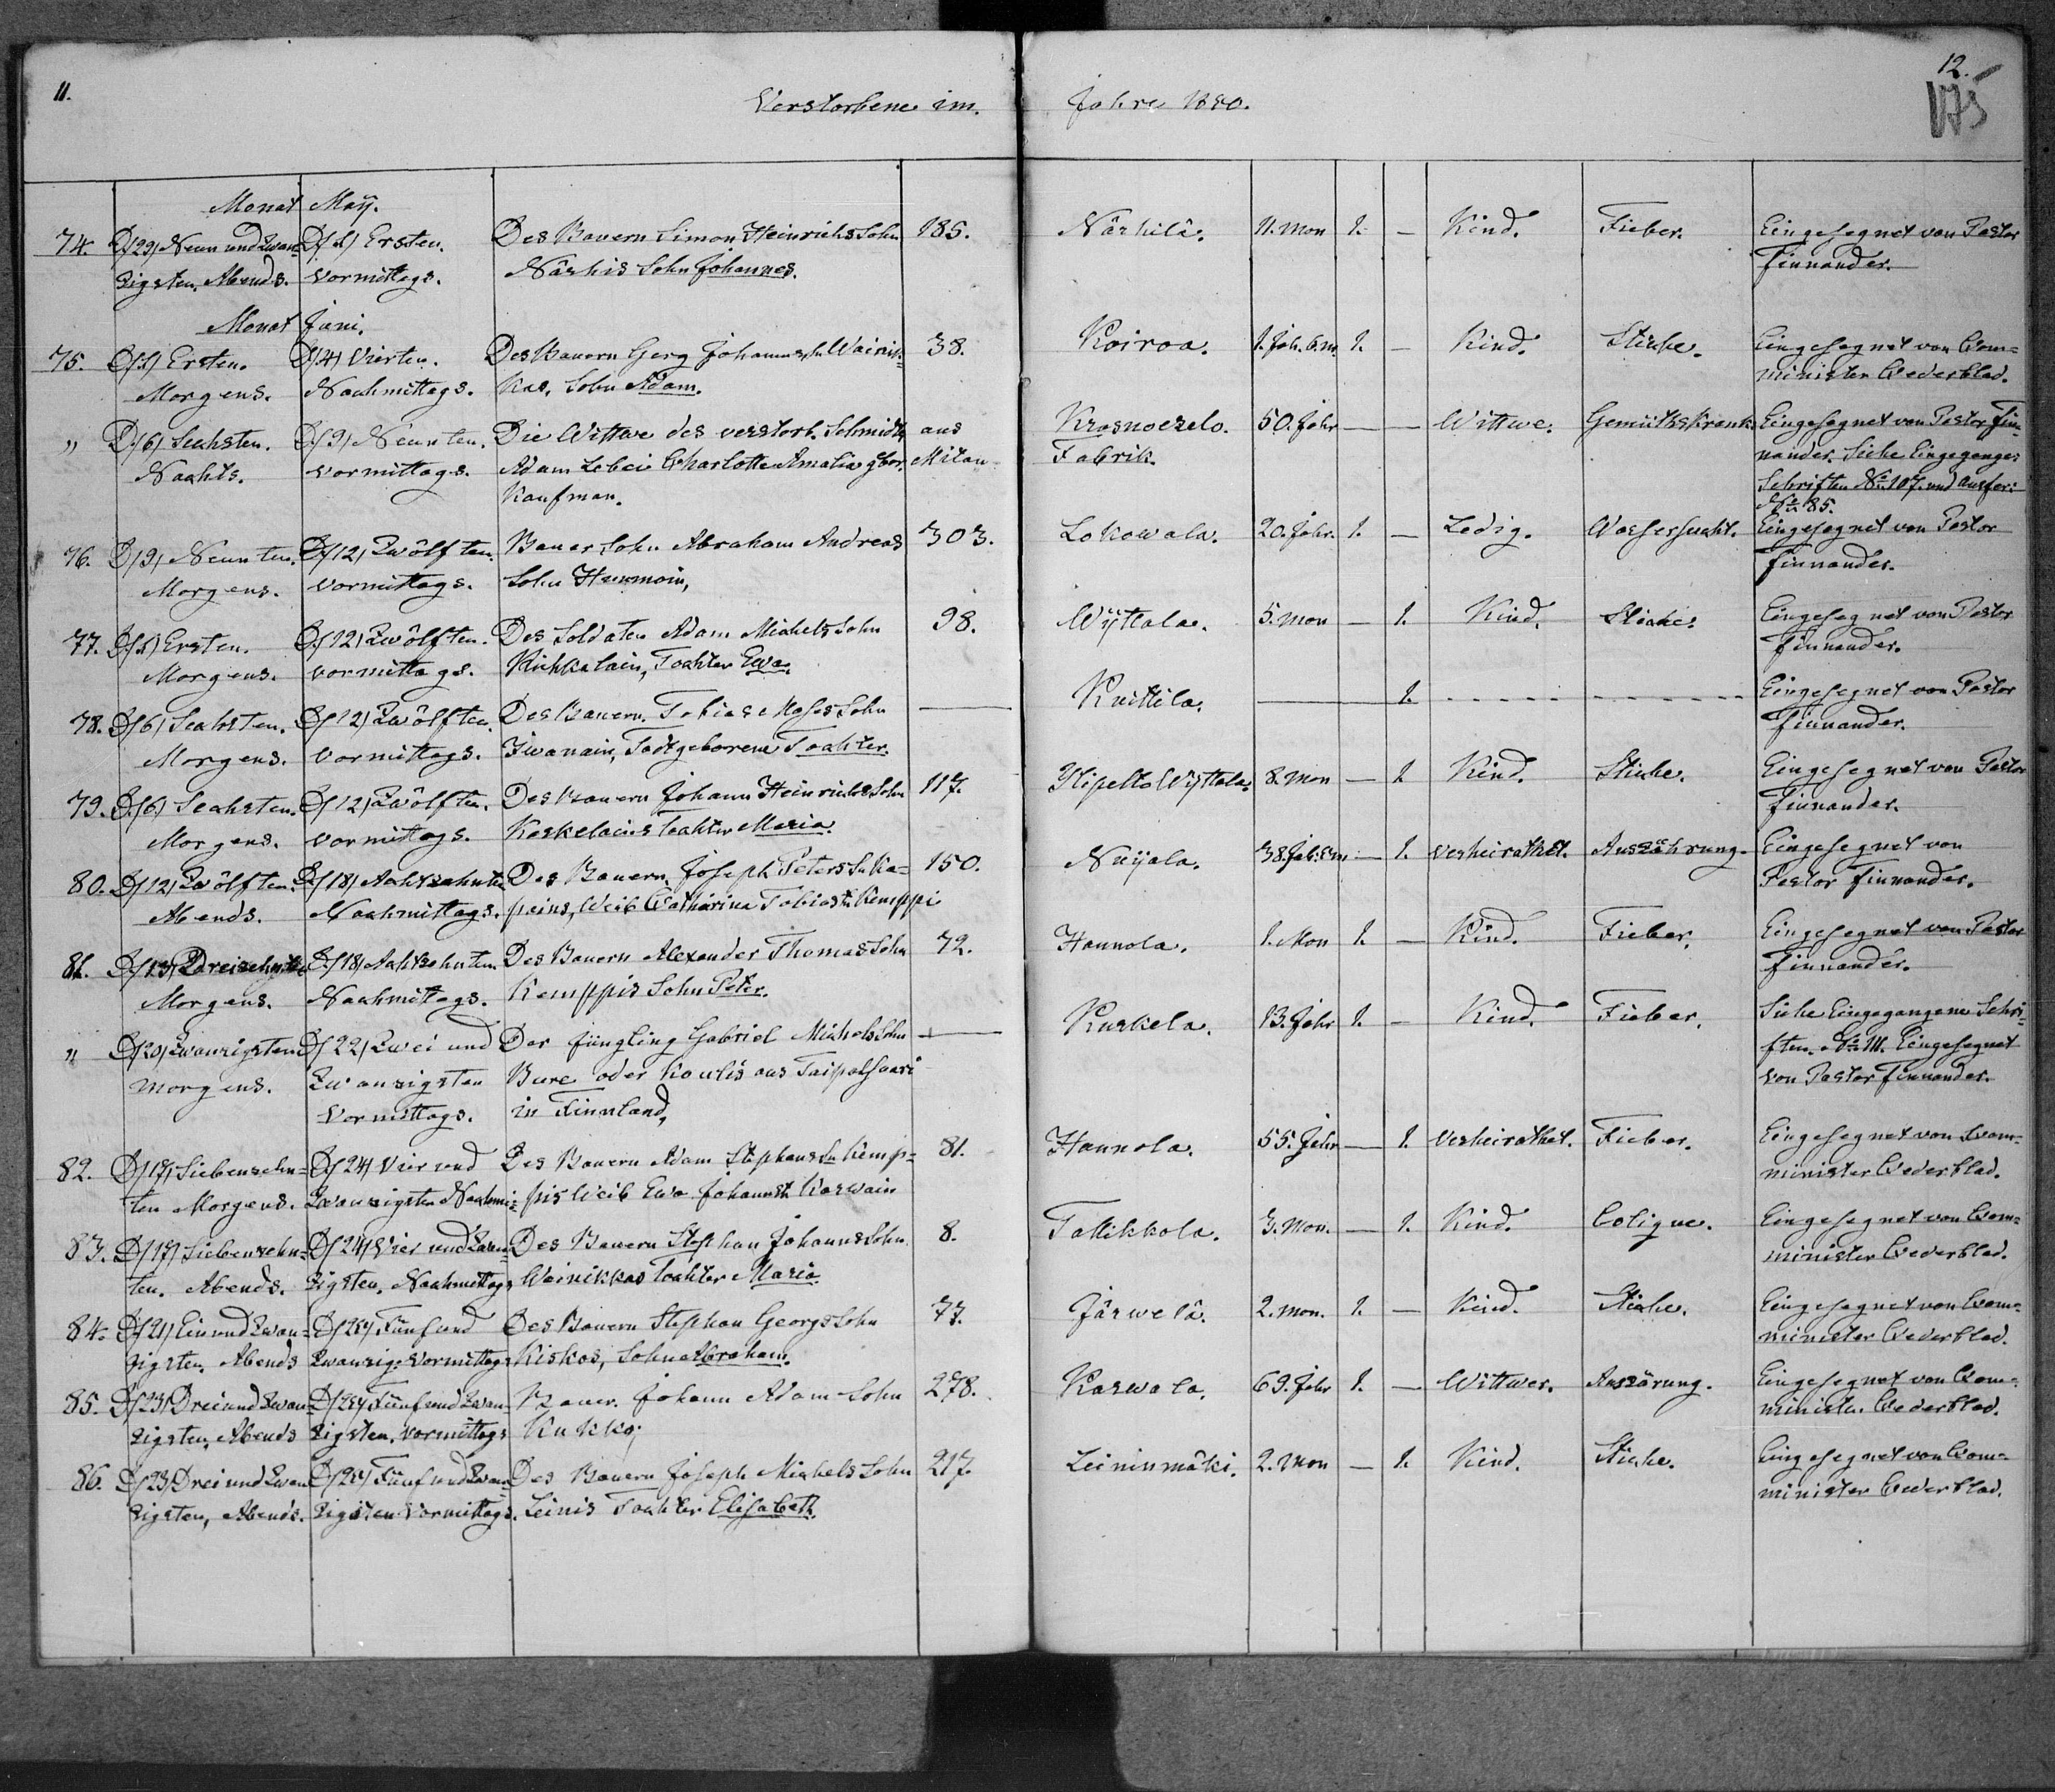 11.
Verstorbene im
Jahre 1880.
12.
175
Monat May.
74. D/29/ Neun und Zwan= D/1/ Ersten. Des Bauern Simon Heinrichs Sohn 185. Närhilä. 11. Mon 1. — Kind. Fieber. Eingesegnet von Pastor
zigsten, Abends. Vormittags. Närhis Sohn Johannes. Finnander.
Monat Juni.
75. D/1/ Ersten. D/4/ Vierten. Des Bauern Gerg Johanns Sn Wainik= 38. Koiroa. 1. Jah. 6. m. 1. — Kind. Stiche. Eingesegnet von Com=
Morgens. Nachmittags. kas, Sohn Adam. minister Cederblad.
" D/6/ Sechsten. D/9/ Neunten. Die Wittwe des verstorb. Schmidts aus Krasnoezelo. 50. Jahr — — Wittwe. Gemüthskrank. Eingesegnet von Pastor Fin=
Nachts. Vormittags. Adam Lebei Charlotte Amalia gbor. Mitau Fabrik. nander. Siehe Eingegange:
Kaufman. Schriften No 107. und Ausfer:
No 85.
76. D/9/ Neunten. D/12/ Zwölften. Bauer Sohn Abraham Andreas 303. Lokowala. 20. Jahr. 1. — Ledig. Wassersucht. Eingesegnet von Pastor
Morgens. Vormittags. Sohn Hurmoin, Finnander.
77. D/1/ Ersten. D/12/ Zwölften. Des Soldaten Adam Michels Sohn 98. Wÿttala. 5. Mon — 1. Kind. Stiche. Eingesegnet von Pastor
Morgens. Vormittags. Tochter Ewa. Finnander.
78. D/6/ Sechsten. D/12/ Zwölften. Des Bauern Tobias Moses Sohn — Knittila. — 1. Eingesegnet von Pastor
Morgens. Vormittags. Iwanain, Todtgeborene Tochter. Finnander.
79. D/6/ Sechsten. D/12/ Zwölften. Des Bauern Johann Heinrichs Sohn 117. Wÿttala. 8. Mon — 1. Kind. Stiche. Eingesegnet von Pastor
Morgens. Vormittags. Koskelains Tochter Maria. Finnander.
80. D/12/ Zwölften. D/18/ Achtzehnten Des Bauern, Joseph Peters Sn Ka= 150. Nuÿala. 38. Jah. — 1. Verheirathet. Auszährung. Eingesegnet von
Abends. Nachmittags. peins, Weib Catharina Tobiast. Kemppi Pastor Finnander.
81. D/13/ Dreizehnten D/18/ Achtzehnten Des Bauern Alexander Thomas Sohn 72. Hannola. 1. Mon 1. — Kind. Fieber. Eingesegnet von Pastor
Morgens. Nachmittags. Kemppis Sohn Peter. Finnander.
" D/20/ Zwanzigsten D/22/ Zwei und Der Jüngling Gabriel Michels Sohn — Kuskela. 13. Jahr 1. — Kind. Fieber. Siehe Eingegangene Schri=
Morgens. Zwanzigsten Bure oder Koulis aus Taipalsaari ften. No 111. Eingesegnet
Vormittags. in Finnland, von Pastor Finnander.
82. D/17/ Siebenzehn= D/24/ Vier und Des Bauern Adam Stephans Sn Kemp= 81. Hannola. 55. Jahr — 1. Verheirathet. Fieber. Eingesegnet von Com=
ten Morgens. Zwanzigsten Nachmi= pis Weib Ewa Johannst. Karwain minister Cederblad.
83. D/17/ Siebenzehn= D/24/ Vier und Zwan= Des Bauern Stephan Johanns Sohn 8. Tallikkola. 3. Mon. — 1. Kind. Colique. Eingesegnet von Com=
ten. Abends. zigsten, Nachmittags Wainikkas Tochter Maria. minister Cederblad.
84. D/21/ Ein und Zwan= D/25/ Fünf und Des Bauern Stephan Georgs Sohn 77. Järwelä. 2. Mon. 1. — Kind. Stiche. Eingesegnet von Com=
zigsten. Abends Zwanzigs. Vormittags Kiskos, Sohn Abraham. minister Cederblad.
85. D/23/ Drei und Zwan= D/25/ Fünf und Zwan= Bauer. Johann Adam Sohn 278. Karwala. 69. Jahr 1. — Wittwer. Auszärung. Eingesegnet von Com=
zigsten, Abends zigsten, Vormittags Kukko, minister Cederblad.
86. D/23/ Drei und Zwan D/25/ Fünf und Zwan= Des Bauern Joseph Michels Sohn 217. Leininmäki. 2. Mon — 1. Kind. Stiche. Eingesegnet von Com=
zigsten, Abends. zigsten Vormittags. Leinis Tochter Elisabeth. minister Cederblad.